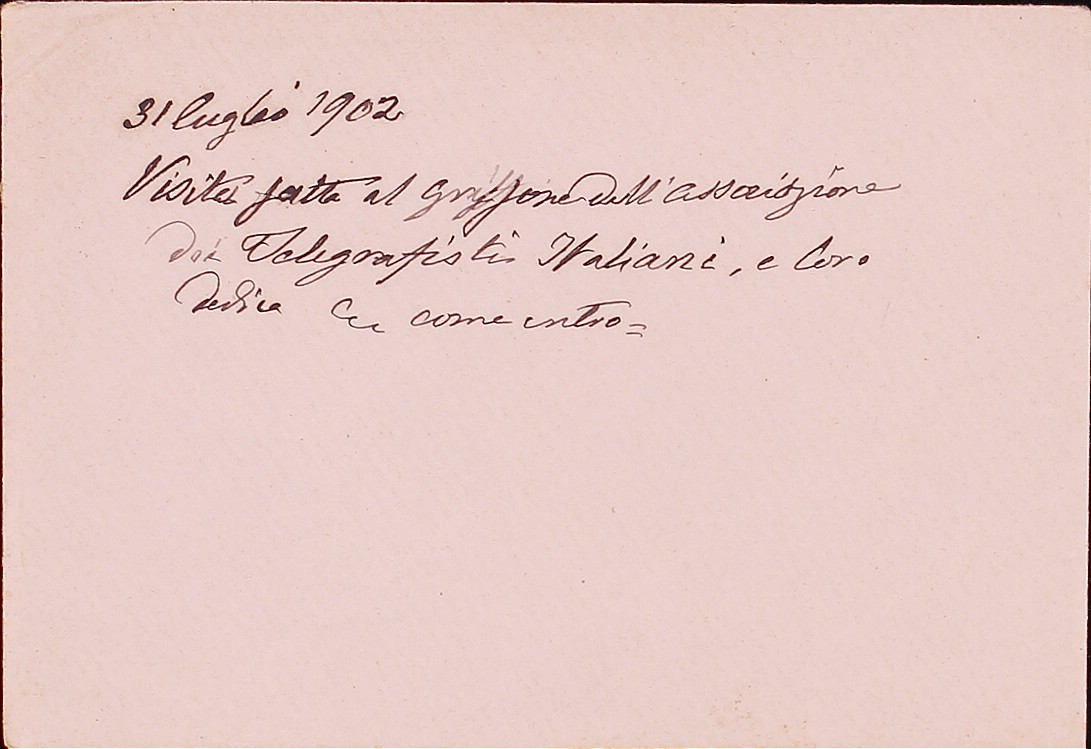 31 luglio 1902
Visita fatta al Griffone dell'associazione
dei Telegrafisti Italiani, e loro
dedica come entro=